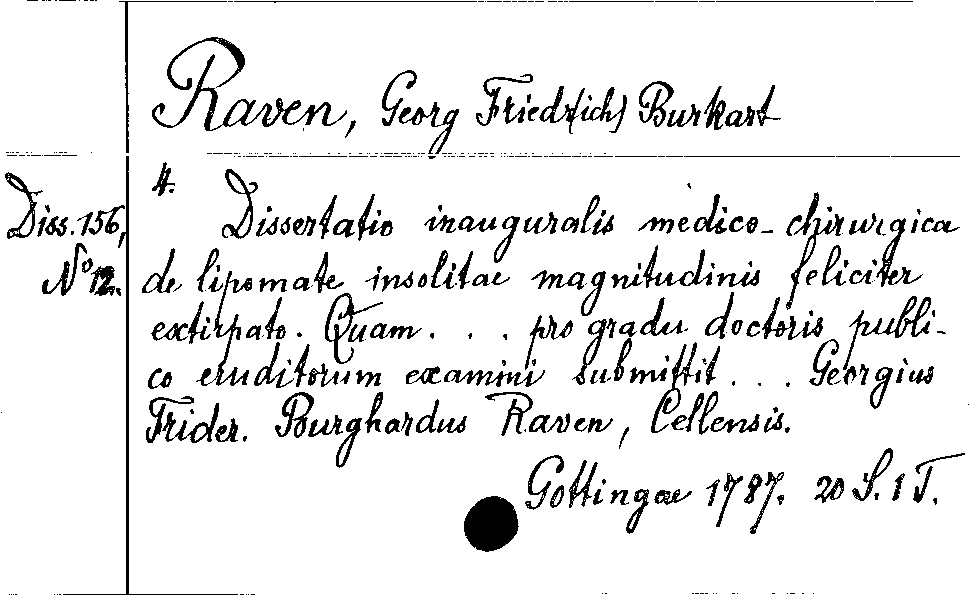 Raven, Georg Friedr(ich) Burkart
4.
Diss. 156,
No 12.
Dissertatio inauguralis medico-chirurgica
de lipomate insolitae magnitudinis feliciter
extirpato. Quam . . . pro gradu doctoris publi-
co eruditorum examini submittit . . . Georgius
Frider. Burghardus Raven, Cellensis.
Gottingae 1787. 20 S. 1 T.